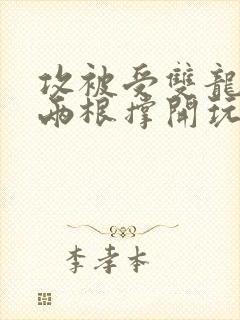 攻被受雙龍
兩根撐開玩
李孝本